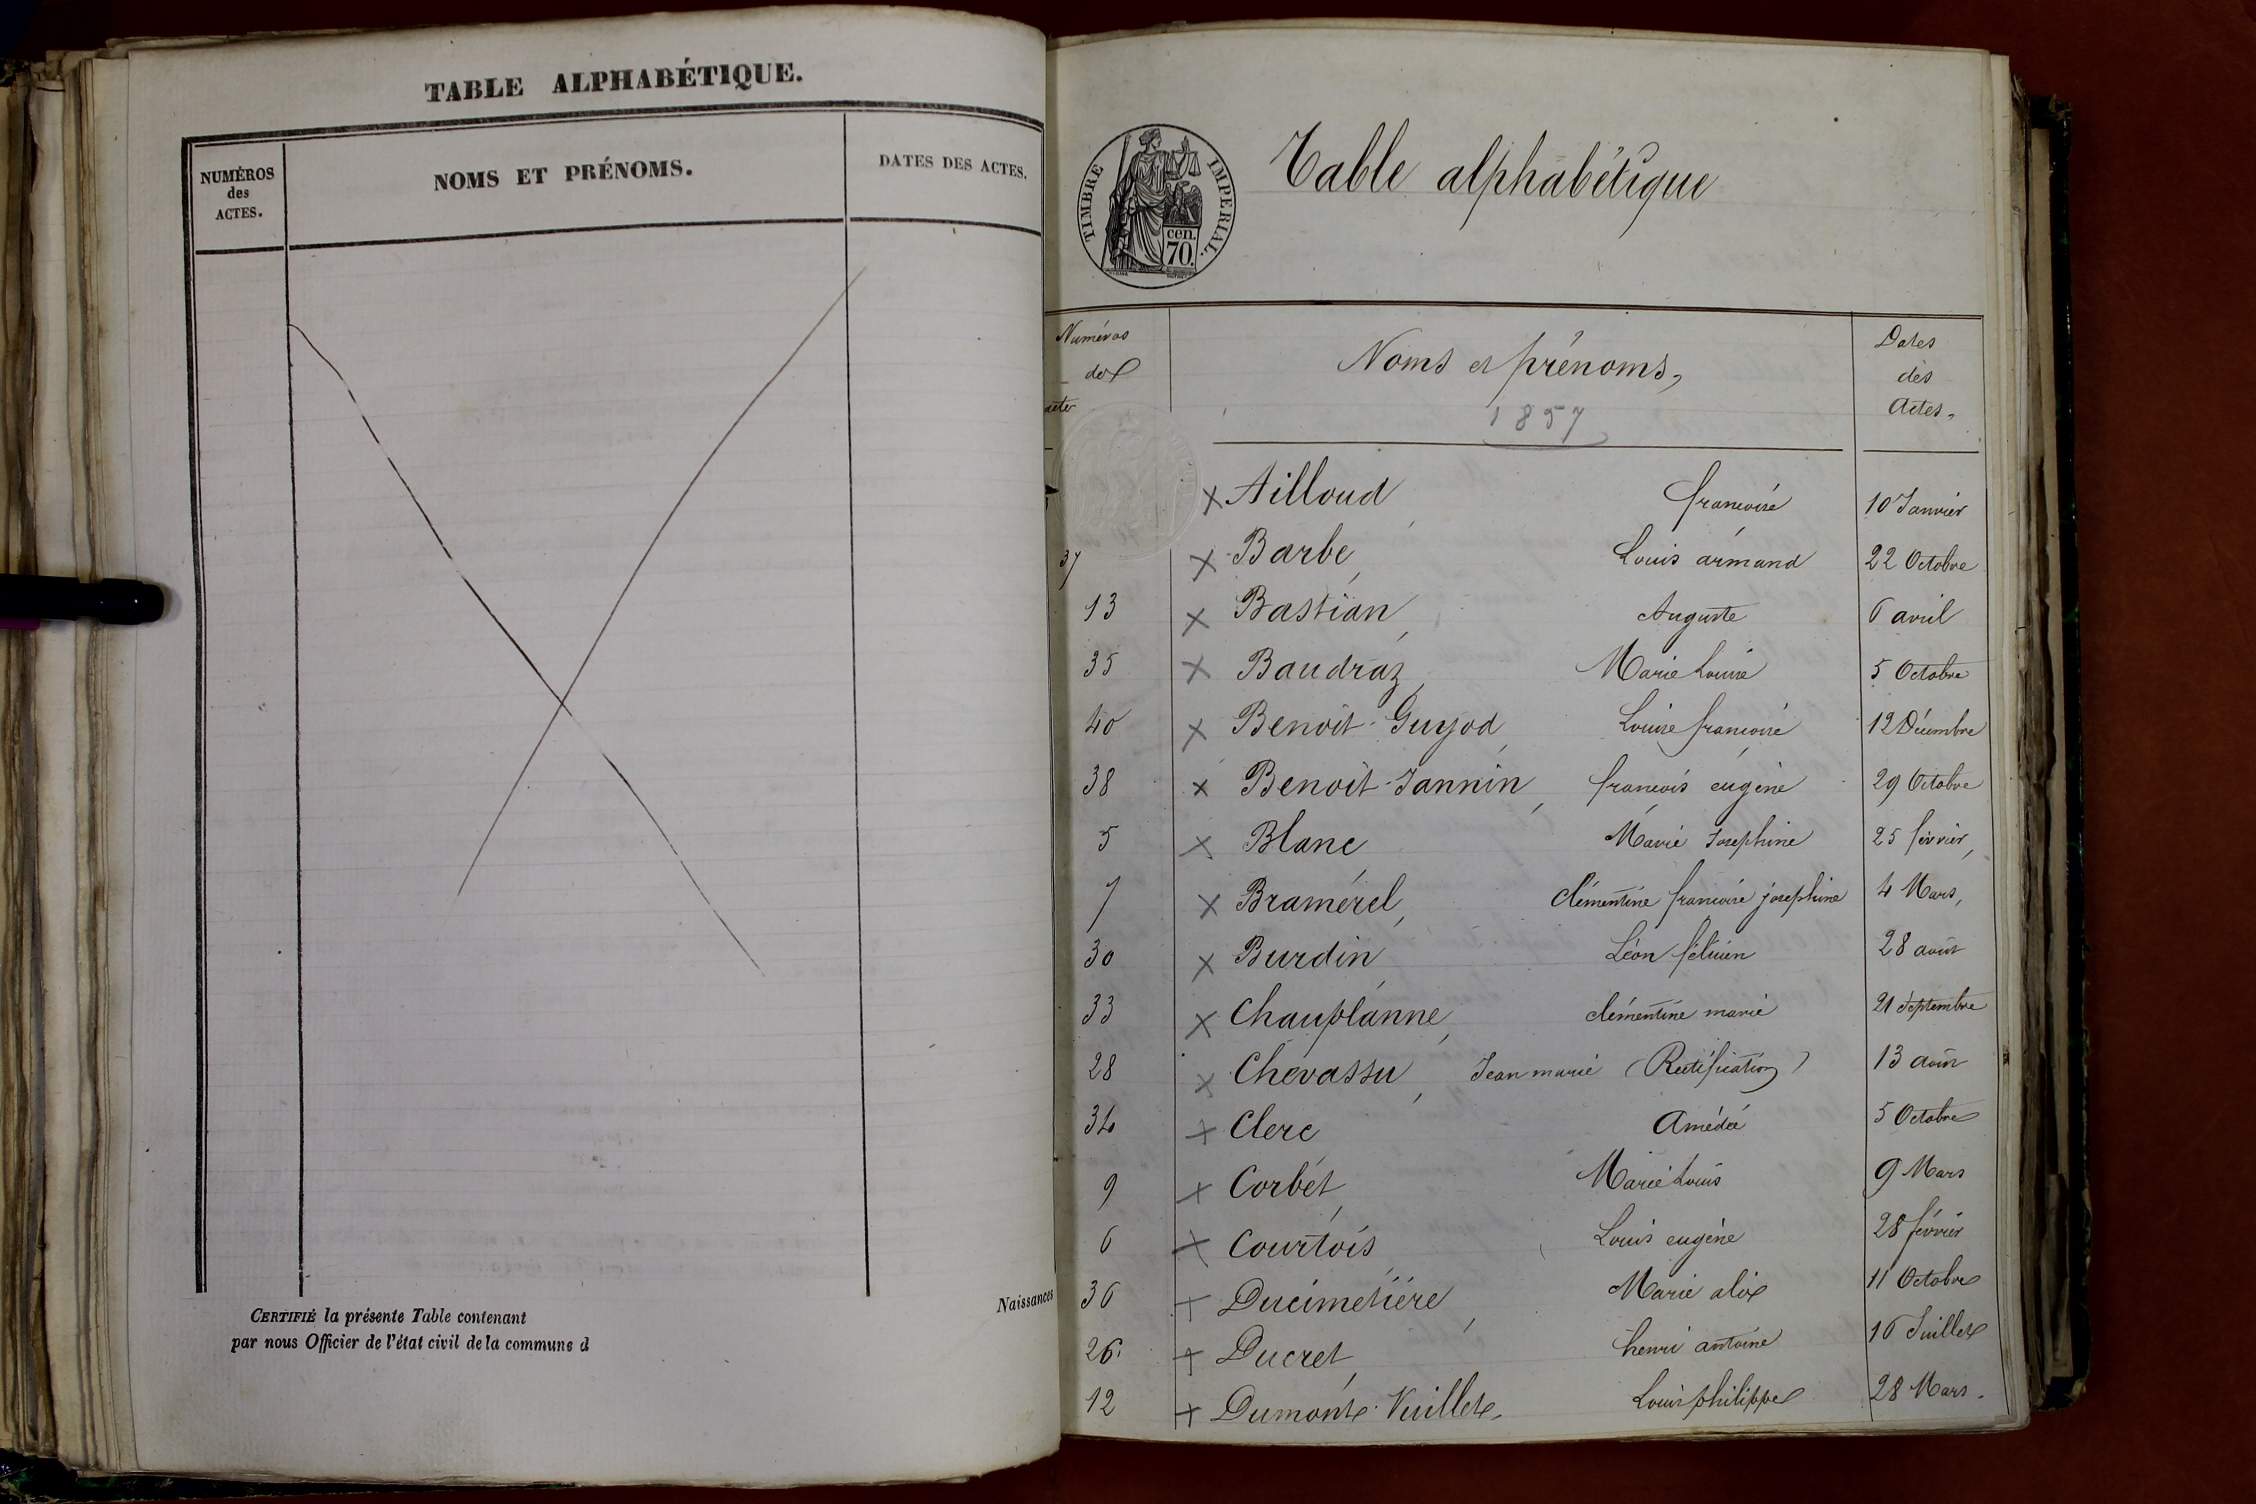 TABLE ALPHABÉTIQUE.
NUMÉROS
des
ACTES.
NOMS ET PRÉNOMS.
DATES DES ACTES.
CERTIFIÉ la présente Table contenant
par nous Officier de l'état civil de la commune d
Naissances
TIMBRE IMPERIAL.
cen.
70.
Table alphabétique
Numéros
des
actes
Noms et prénoms,
1857
Dates
des
Actes.
Ailloud françoise 10 Janvier
37 Barbe, Louis armand 22 Octobre
13 Bastian, Auguste 6 avril
35 Baudraz, Marie Louise 5 Octobre
40 Benoit-Guyod, Louise françoise 12 Décembre
38 Benoit-Jannin, françois eugène 29 Octobre
5 Blanc Marie Josephine 25 février,
7 Bramerel, Clémentine françoise josephine 4 Mars,
30 Burdin, Léon félicien 28 août
33 Chauplanne, clémentine marie 21 Septembre
28 Chevassu, Jean marie (Rectification) 13 août
34 Clerc Amédée 5 Octobre
9 Corbet, Marie Louis 9 Mars
6 Courtois, Louis eugène 28 février
36 Ducimetière, Marie alix 11 Octobre
26 Ducret, henri antoine 16 Juillet
12 Dumont-Vuillet, Louis philippe 28 Mars.